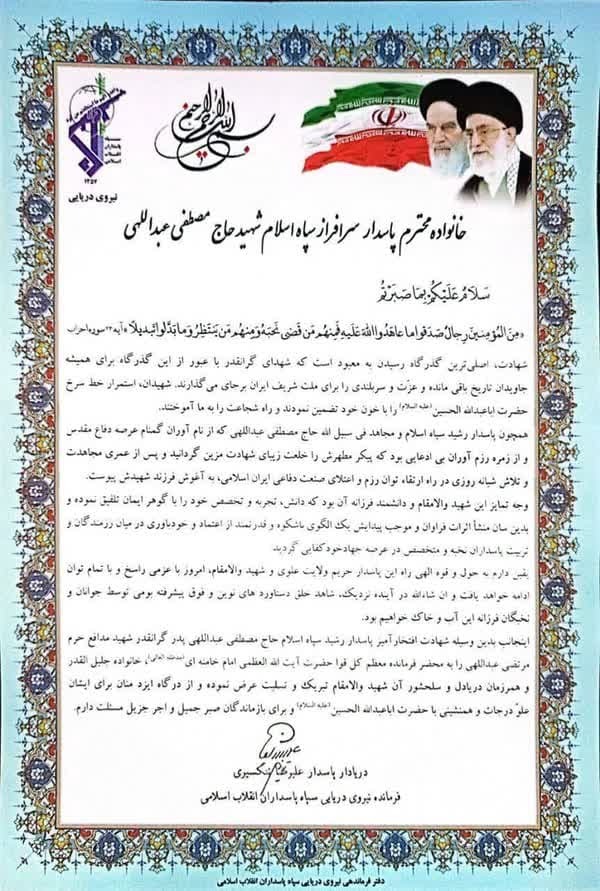 بسم الله الرحمن الرحیم
سپاه
پاسداران
انقلاب
اسلامی
۱۳۵۷
نیروی دریایی
خانواده محترم پاسدار سرافراز سپاه اسلام شهید حاج مصطفی عبداللهی
سَلامٌ عَلَیْکُمْ بِما صَبَرْتُمْ
«مِنَ المُؤمِنینَ رِجالٌ صَدَقوا ما عاهَدُوا اللهَ عَلَیهِ فَمِنهُم مَن قَضى نَحبَهُ وَمِنهُم مَن یَنتَظِرُ وَما بَدَّلوا تَبدیلًا» آیه ۲۳ سوره احزاب
شهادت، اصلی‌ترین گذرگاه رسیدن به معبود است که شهدای گرانقدر با عبور از این گذرگاه برای همیشه
جاویدان تاریخ باقی مانده و عزّت و سربلندی را برای ملت شریف ایران برجای می‌گذارند. شهیدان، استمرار خط سرخ
حضرت اباعبدالله الحسین(علیه السلام) را با خون خود تضمین نمودند و راه شجاعت را به ما آموختند.
همچون پاسدار رشید سپاه اسلام و مجاهد فی سبیل الله حاج مصطفی عبداللهی که از نام آوران گمنام عرصه دفاع مقدس
و از زمره رزم آوران بی ادعایی بود که پیکر مطهرش را خلعت زیبای شهادت مزین گردانید و پس از عمری مجاهدت
و تلاش شبانه روزی در راه ارتقاء توان رزم و اعتلای صنعت دفاعی ایران اسلامی، به آغوش فرزند شهیدش پیوست.
وجه تمایز این شهید والامقام و دانشمند فرزانه آن بود که دانش، تجربه و تخصص خود را با گوهر ایمان تلفیق نموده و
بدین سان منشأ اثرات فراوان و موجب پیدایش یک الگوی باشکوه و قدرتمند از اعتماد و خودباوری در میان رزمندگان و
تربیت پاسداران نخبه و متخصص در عرصه جهادخودکفایی گردید
یقین دارم به حول و قوه الهی راه این پاسدار حریم ولایت علوی و شهید والامقام، امروز با عزمی راسخ و با تمام توان
ادامه خواهد یافت و ان شاءالله در آینده نزدیک، شاهد خلق دستاورد های نوین و فوق پیشرفته بومی توسط جوانان و
نخبگان فرزانه این آب و خاک خواهیم بود.
اینجانب بدین وسیله شهادت افتخارآمیز پاسدار رشید سپاه اسلام حاج مصطفی عبداللهی پدر گرانقدر شهید مدافع حرم
مرتضی عبداللهی را به محضر فرمانده معظم کل قوا حضرت آیت الله العظمی امام خامنه ای(مدظله العالی)، خانواده جلیل القدر
و همرزمان دریادل و سلحشور آن شهید والامقام تبریک و تسلیت عرض نموده و از درگاه ایزد منان برای ایشان
علوّ درجات و همنشینی با حضرت اباعبدالله الحسین(علیه السلام) و برای بازماندگان صبر جمیل و اجر جزیل مسئلت دارم.
دریادار پاسدار علیرضا تنگسیری
فرمانده نیروی دریایی سپاه پاسداران انقلاب اسلامی
دفتر فرماندهی نیروی دریایی سپاه پاسداران انقلاب اسلامی